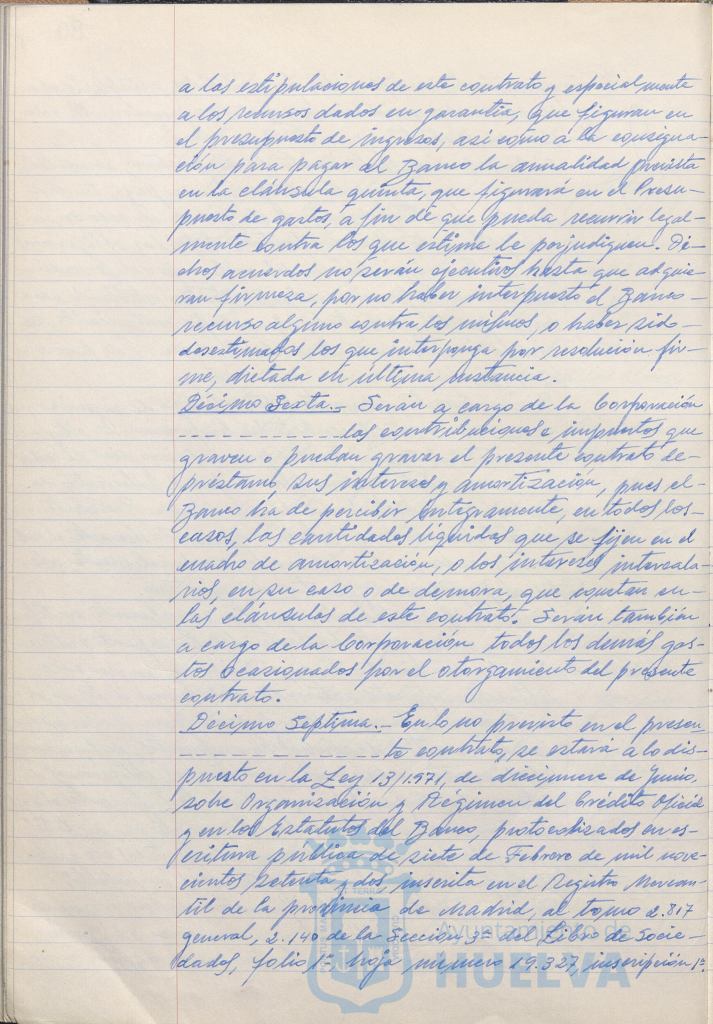 a las estipulaciones de este contrato y especialmente
a los recursos dados en garantía, que figuran en
el presupuesto de ingresos, así como a la consigna-
ción para pagar al Banco la anualidad prevista
en la cláusula quinta, que figurará en el Presu-
puesto de gastos, a fin de que pueda recurrir legal-
mente contra los que estime le perjudiquen. Di-
chos acuerdos no serán ejecutivos hasta que adquie-
ran firmeza, por no haber interpuesto el Banco-
recurso alguno contra los mismos, o haber sido-
desestimados los que interponga por resolución fir-
me, dictada en última instancia.
Décimo Sexta.- Serán a cargo de la Corporación
------------- las contribuciones e impuestos que
graven o puedan gravar el presente contrato de-
préstamo, sus intereses y amortización, pues el-
Banco ha de percibir íntegramente, en todos los-
casos, las cantidades líquidas que se fijen en el
cuadro de amortización, o los intereses intercala-
rios, en su caso o de demora, que constan en-
las cláusulas de este contrato. Serán también
a cargo de la Corporación todos los demás gas-
tos ocasionados por el otorgamiento del presente
contrato.
Décimo Septima.- En lo no previsto en el presen-
---------------- te contrato, se estará a lo dis-
puesto en la Ley 13/1.971, de diecinueve de Junio,
sobre Organización y Régimen del Crédito Oficial
y en los Estatutos del Banco, protocolizados en es-
critura pública de siete de Febrero de mil nove-
cientos setenta y dos inscrita en el Registro Mercan-
til de la provincia de Madrid, al tomo 2.817
general, 2.140 de la Sección 3ª del Libro de Socie-
dades, folio 1º, hoja número 19.327, inscripción 1ª.
Ayuntamiento de
HUELVA